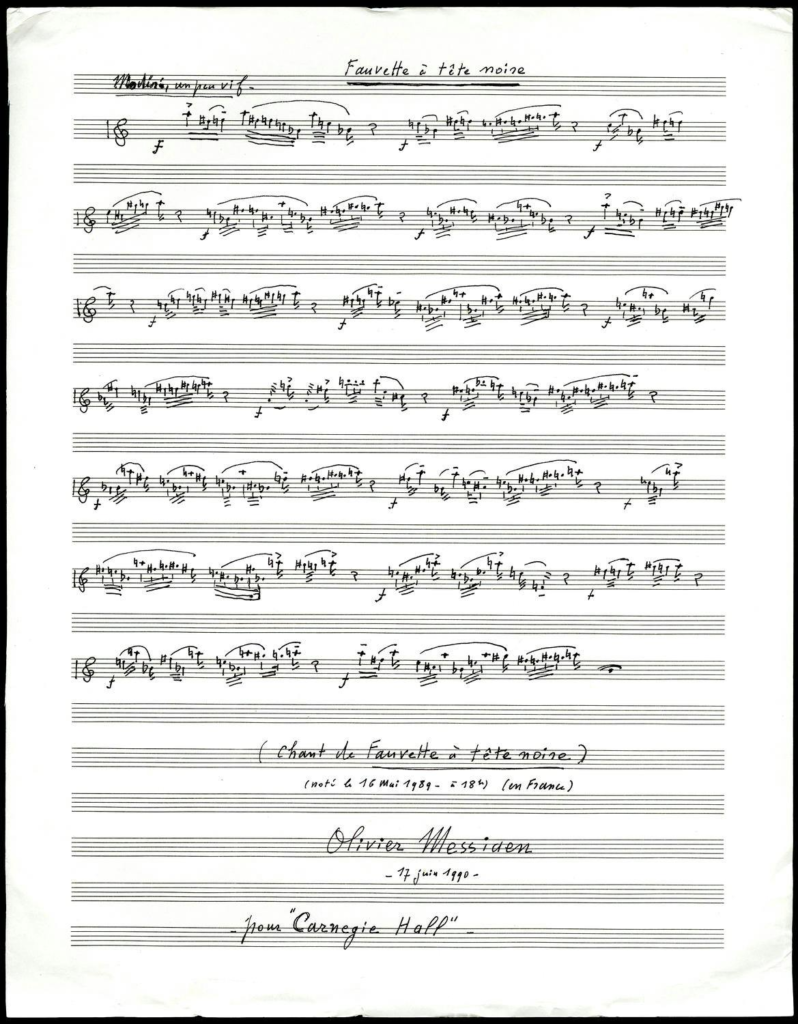 Fauvette à tête noire
Modéré, un peu vif -
f
f f
f f
f f
f f
f f f
f f
f f
f f
f f
f f
f f
(Chant de Fauvette à tête noire)
(noté le 16 Mai 1989 - à 18h) (en France)
Olivier Messiaen
- 17 juin 1990 -
- pour "Carnegie Hall" -